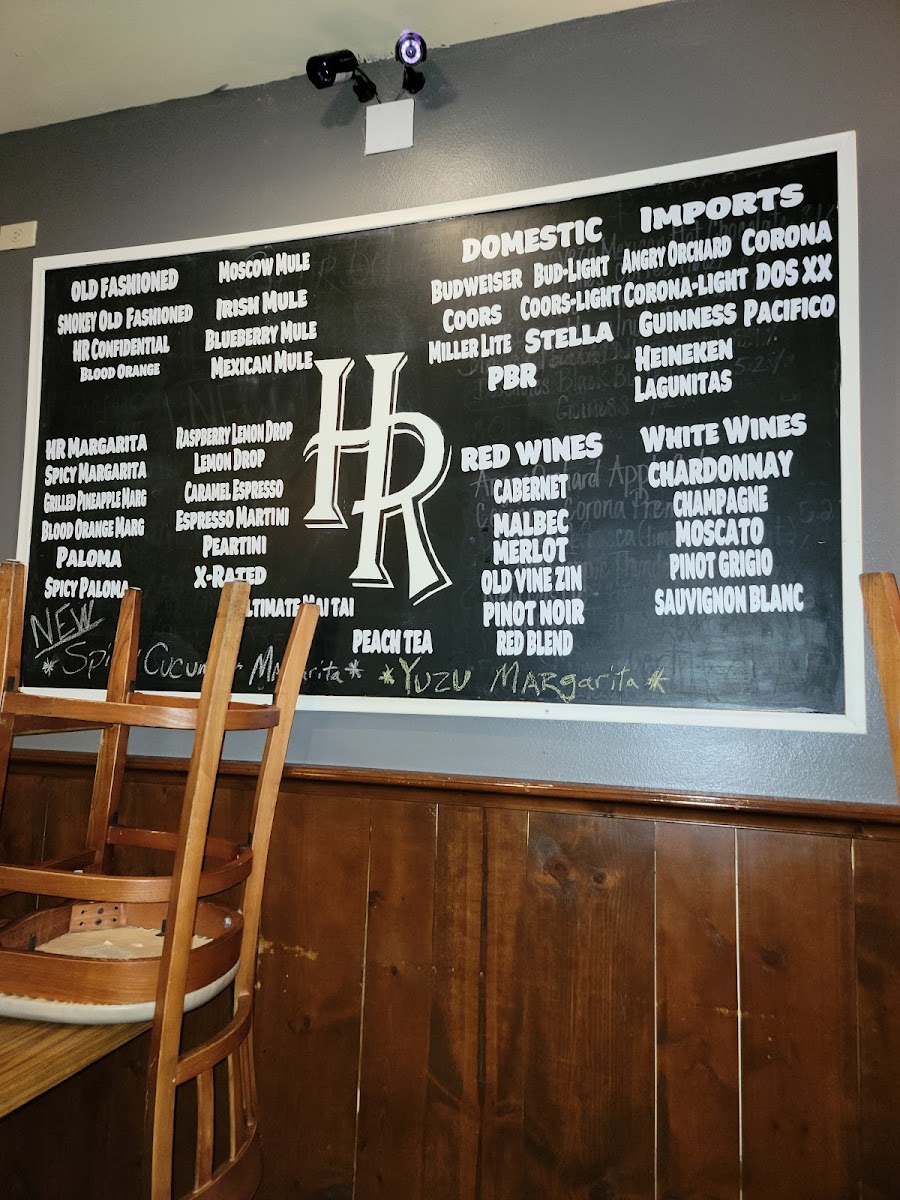 OLD FASHIONED
SMOKEY OLD FASHIONED
HR CONFIDENTIAL
BLOOD ORANGE
MOSCOW MULE
IRISH MULE
BLUEBERRY MULE
MEXICAN MULE
HR MARGARITA
SPICY MARGARITA
GRILLED PINEAPPLE MARG
BLOOD ORANGE MARG
PALOMA
SPICY PALOMA
RASPBERRY LEMON DROP
LEMON DROP
CARAMEL ESPRESSO
ESPRESSO MARTINI
PEARTINI
X-RATED
ULTIMATE MAI TAI
PEACH TEA
HR
DOMESTIC
BUDWEISER BUD-LIGHT
COORS COORS-LIGHT
MILLER LITE STELLA
PBR
IMPORTS
ANGRY ORCHARD CORONA
CORONA-LIGHT DOS XX
GUINNESS PACIFICO
HEINEKEN
LAGUNITAS
RED WINES
CABERNET
MALBEC
MERLOT
OLD VINE ZIN
PINOT NOIR
RED BLEND
WHITE WINES
CHARDONNAY
CHAMPAGNE
MOSCATO
PINOT GRIGIO
SAUVIGNON BLANC
NEW
*Spicy Cucumber Margarita* *Yuzu Margarita*